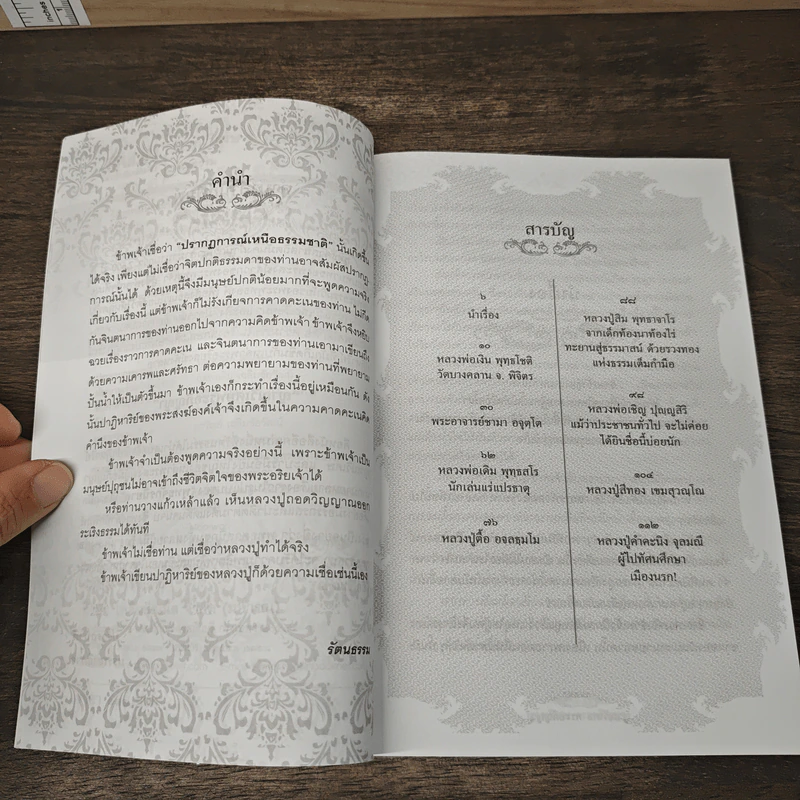 inches
1
คำนำ
ข้าพเจ้าเชื่อว่า "ปรากฏการณ์เหนือธรรมชาติ" นั้นเกิดขึ้น
ได้จริง เพียงแต่ไม่เชื่อว่าจิตปกติธรรมดาของท่านอาจสัมผัสปรากฏ-
การณ์นั้นได้ ด้วยเหตุนี้จึงมีมนุษย์ปกติน้อยมากที่จะพูดความจริง
เกี่ยวกับเรื่องนี้ แต่ข้าพเจ้าก็ไม่รังเกียจการคาดคะเนของท่าน ไม่กีด
กันจินตนาการของท่านออกไปจากความคิดข้าพเจ้า ข้าพเจ้าจึงหยิบ
ฉวยเรื่องราวการคาดคะเน และจินตนาการของท่านเอามาเขียนถึง
ด้วยความเคารพและศรัทธา ต่อความพยายามของท่านที่พยายาม
ปั้นน้ำให้เป็นตัวขึ้นมา ข้าพเจ้าเองก็กระทำเรื่องนี้อยู่เหมือนกัน ดัง
นั้นปาฏิหาริย์ของพระสงฆ์องค์เจ้าจึงเกิดขึ้นในความคาดคะเนคิด
คำนึงของข้าพเจ้า
ข้าพเจ้าจำเป็นต้องพูดความจริงอย่างนี้ เพราะข้าพเจ้าเป็น
มนุษย์ปุถุชนไม่อาจเข้าถึงชีวิตจิตใจของพระอริยเจ้าได้
หรือท่านวางแก้วเหล้าแล้ว เห็นหลวงปู่ถอดวิญญาณออก
ระเริงธรรมได้ทันที
ข้าพเจ้าไม่เชื่อท่าน แต่เชื่อว่าหลวงปู่ทำได้จริง
ข้าพเจ้าเขียนปาฏิหาริย์ของหลวงปู่ก็ด้วยความเชื่อเช่นนี้เอง
รัตนธรรม
สารบัญ
๖
นำเรื่อง
๑๐
หลวงพ่อเงิน พุทธโชติ
วัดบางคลาน จ. พิจิตร
๓๐
พระอาจารย์ชามา อจุตฺโต
๖๒
หลวงพ่อเดิม พุทฺธสโร
นักเล่นแร่แปรธาตุ
๗๖
หลวงปู่ตื้อ อจลธมฺโม
๘๘
หลวงปู่สิม พุทธาจาโร
จากเด็กท้องนาท้องไร่
ทะยานสู่ธรรมาสน์ ด้วยรวงทอง
แห่งธรรมเต็มกำมือ
๙๘
หลวงพ่อเชิญ ปุญฺญสิริ
แม้ว่าประชาชนทั่วไป จะไม่ค่อย
ได้ยินชื่อนี้บ่อยนัก
๑๐๔
หลวงปู่สีทอง เขมสุวณฺโณ
๑๑๒
หลวงปู่คำคะนิง จุลมณี
ผู้ไปทัศนศึกษา
เมืองนรก!